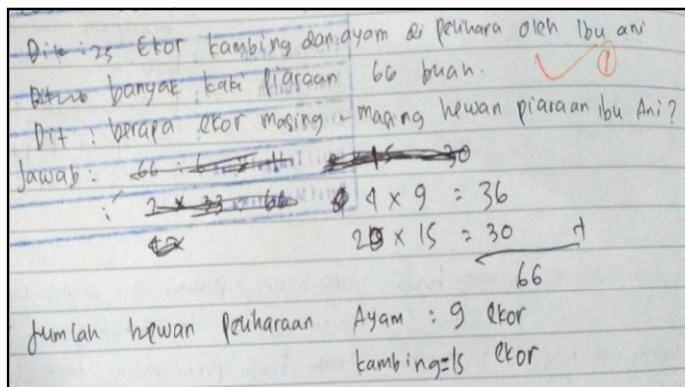 Dik : 25 Ekor kambing dan ayam di pelihara oleh Ibu ani
banyak kaki piaraan 66 buah.
Dit : berapa ekor masing - masing hewan piaraan ibu Ani?
Jawab : 66 : 6 = 11 15 30
2 x 33 = 66 4 x 9 = 36
4x 2 x 15 = 30 +
66
Jumlah hewan peliharaan Ayam : 9 ekor
kambing = 15 ekor